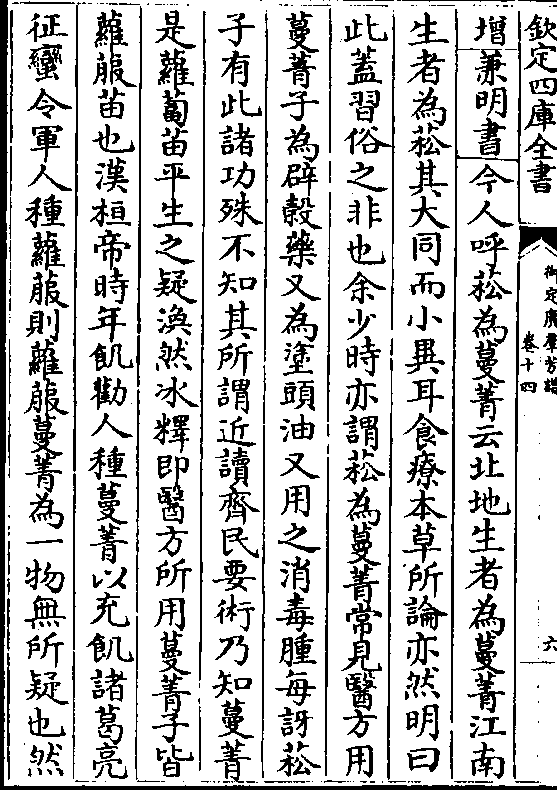 欽定四庫全書
御定廣羣芳譜
卷十四
六
增兼明書今人呼菘為蔓菁云北地生者為蔓菁江南
生者為菘其大同而小異耳食療本草所論亦然明曰
此蓋習俗之非也余少時亦謂菘為蔓菁常見醫方用
蔓菁子為辟穀藥又為塗頭油又用之消毒腫每訝菘
子有此諸功殊不知其所謂近讀齊民要術乃知蔓菁
是蘿蔔苗平生之疑渙然冰釋即醫方所用蔓菁子皆
蘿菔苗也漢桓帝時年飢勸人種蔓菁以充飢諸葛亮
征蠻令軍人種蘿菔則蘿菔蔓菁為一物無所疑也然